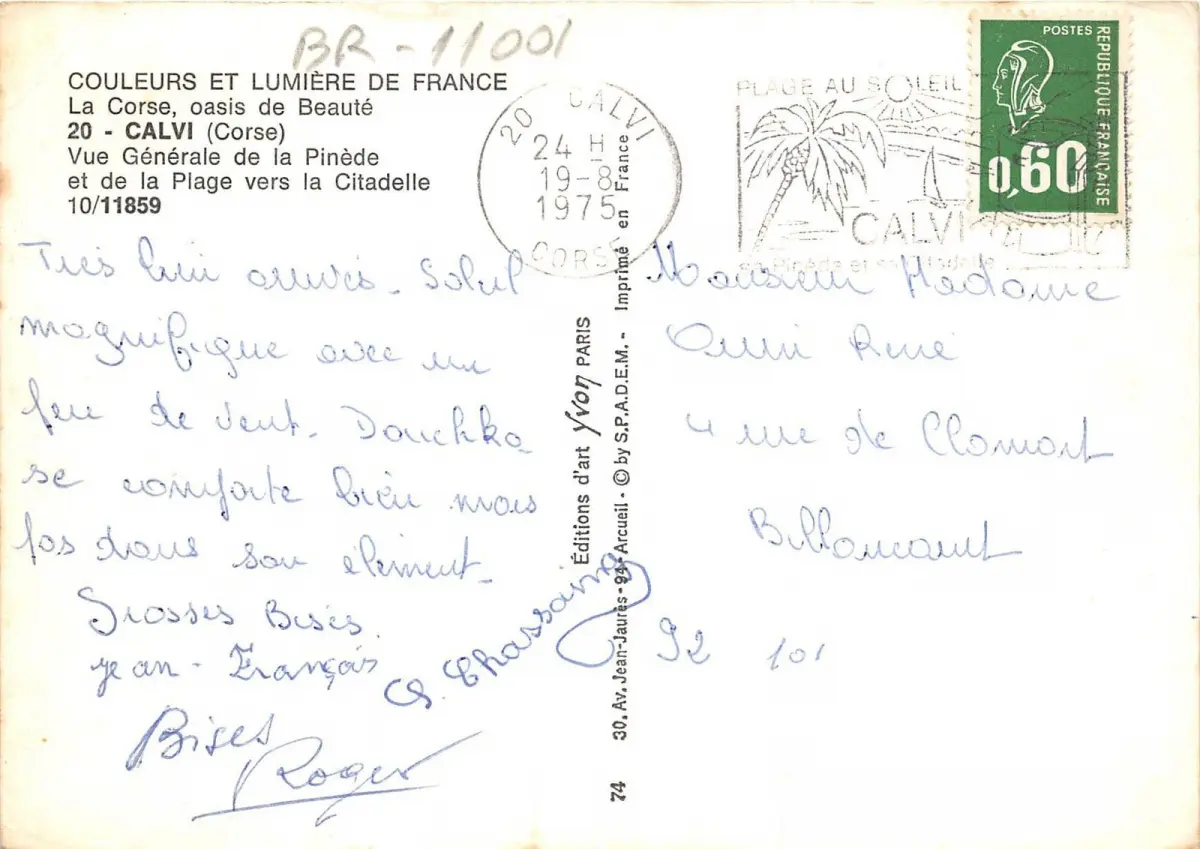 BR-11001
COULEURS ET LUMIÈRE DE FRANCE
La Corse, oasis de Beauté
20 - CALVI (Corse)
Vue Générale de la Pinède
et de la Plage vers la Citadelle
10/11859
20 CALVI
24 H
19-8
1975
CORSE
PLAGE AU SOLEIL
CALVI
sa Pinède et sa Citadelle
POSTES
REPUBLIQUE FRANÇAISE
0,60
Très bien arrivés - Soleil
magnifique avec un
peu de vent - Douchka
se comporte bien mais
pas dans son élément -
Grosses Bises
Jean-François
G. Chassaing
Bises
Roger
Éditions d'art Yvon PARIS
30, Av. Jean-Jaurès - 94 - Arcueil - © by S.P.A.D.E.M. - Imprimé en France
74
Monsieur Madame
René
4 rue de Clamart
Billancourt
92 101